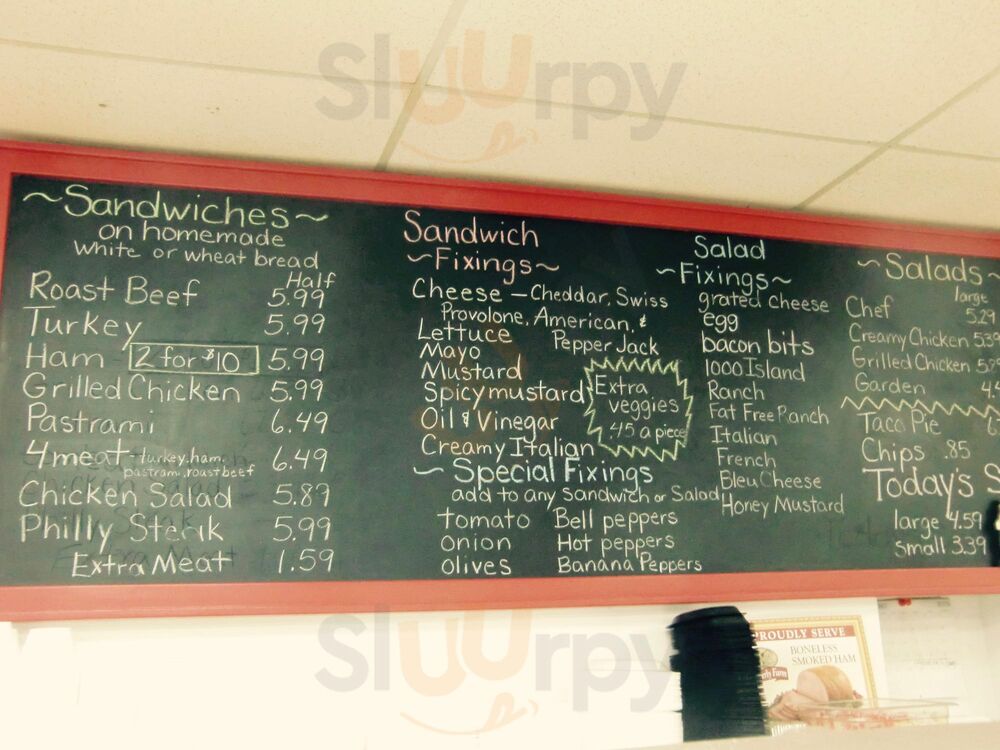 Sluurpy
~Sandwiches~
on homemade
white or wheat bread
Half
Roast Beef 5.99
Turkey 5.99
Ham 2 for $10 5.99
Grilled Chicken 5.99
Pastrami 6.49
4 meat - turkey, ham,
pastrami, roast beef 6.49
Chicken Salad 5.89
Philly Steak 5.99
Extra Meat 1.59
Sandwich
~Fixings~
Cheese - Cheddar, Swiss
Provolone, American, &
Pepper Jack
Lettuce
Mayo
Mustard
Spicy mustard
Oil & Vinegar
Creamy Italian
Extra
veggies
.45 a piece
~ Special Fixings
add to any sandwich or Salad
tomato Bell peppers
onion Hot peppers
olives Banana Peppers
Salad
~Fixings~
grated cheese
egg
bacon bits
1000 Island
Ranch
Fat Free Ranch
Italian
French
Bleu Cheese
Honey Mustard
~Salads~
large
Chef 5.29
Creamy Chicken
Grilled Chicken
Garden
Taco Pie
Chips .85
Today's
large 4.59
small 3.39
Sluurpy
PROUDLY SERVE
BONELESS
SMOKED HAM